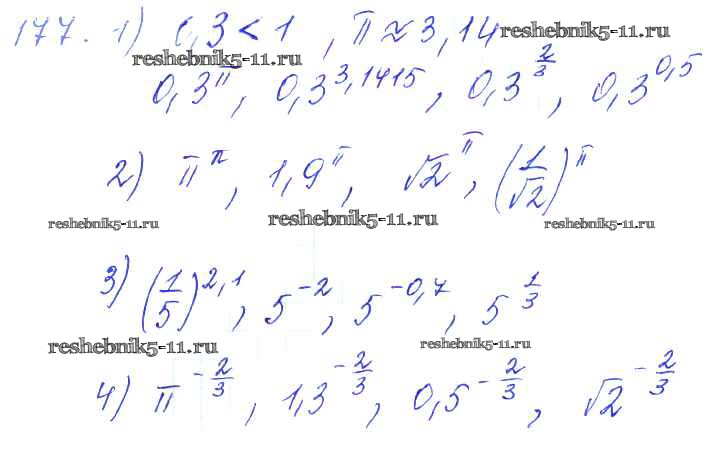 177. 1) 0,3 < 1 , π ≈ 3,14 reshebnik5-11.ru
reshebnik5-11.ru
0,3^π, 0,3^3,1415, 0,3^(2/3), 0,3^0,5
2) π^π, 1,9^π, √2^π, (1/√2)^π
reshebnik5-11.ru reshebnik5-11.ru reshebnik5-11.ru
3) (1/5)^2,1, 5^-2, 5^-0,7, 5^(1/3)
reshebnik5-11.ru reshebnik5-11.ru
4) π^(-2/3), 1,3^(-2/3), 0,5^(-2/3), √2^(-2/3)